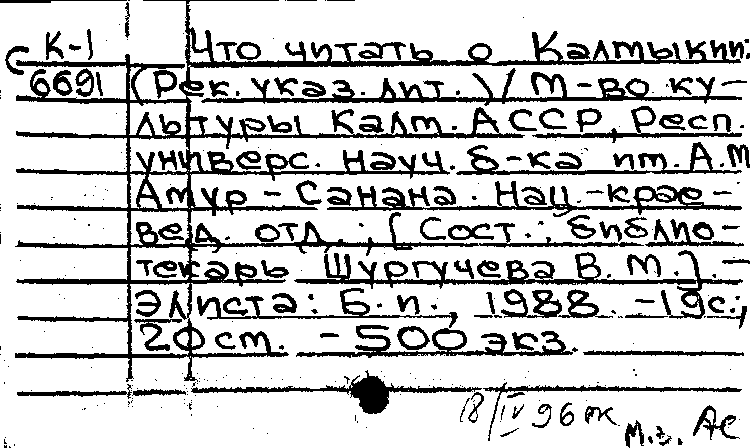 К-1 Что читать о Калмыкии:
6691 (Рек. указ. лит.)/ М-во ку-
льтуры Калм. АССР, Респ.
универс. науч. б-ка им. А.М
Амур-Санана. Нац.-крае-
вед. отд.; [Сост.: библио-
текарь Шургучева В. М.]. -
Элиста: Б.и., 1988. -19с.;
20 ст. - 500 экз.
18/IV 96
м.з.